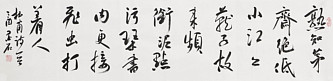 熟知茅
齋絕低
小江上
燕子故
来頻
銜泥點
污琴書
内更接
飛虫打
着人
杜甫詩一首